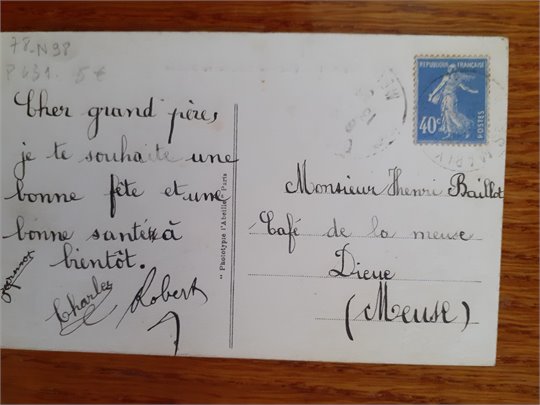 78-N98
P 631. 5€
Cher grand père,
je te souhaite une
bonne fête et une
bonne santé à
bientôt.
Charles
Robert
"Phototypie l'Abeille" Paris
REPUBLIQUE FRANÇAISE
40c
POSTES
Monsieur Henri Baillot
Café de la meuse
Dieue
(Meuse)